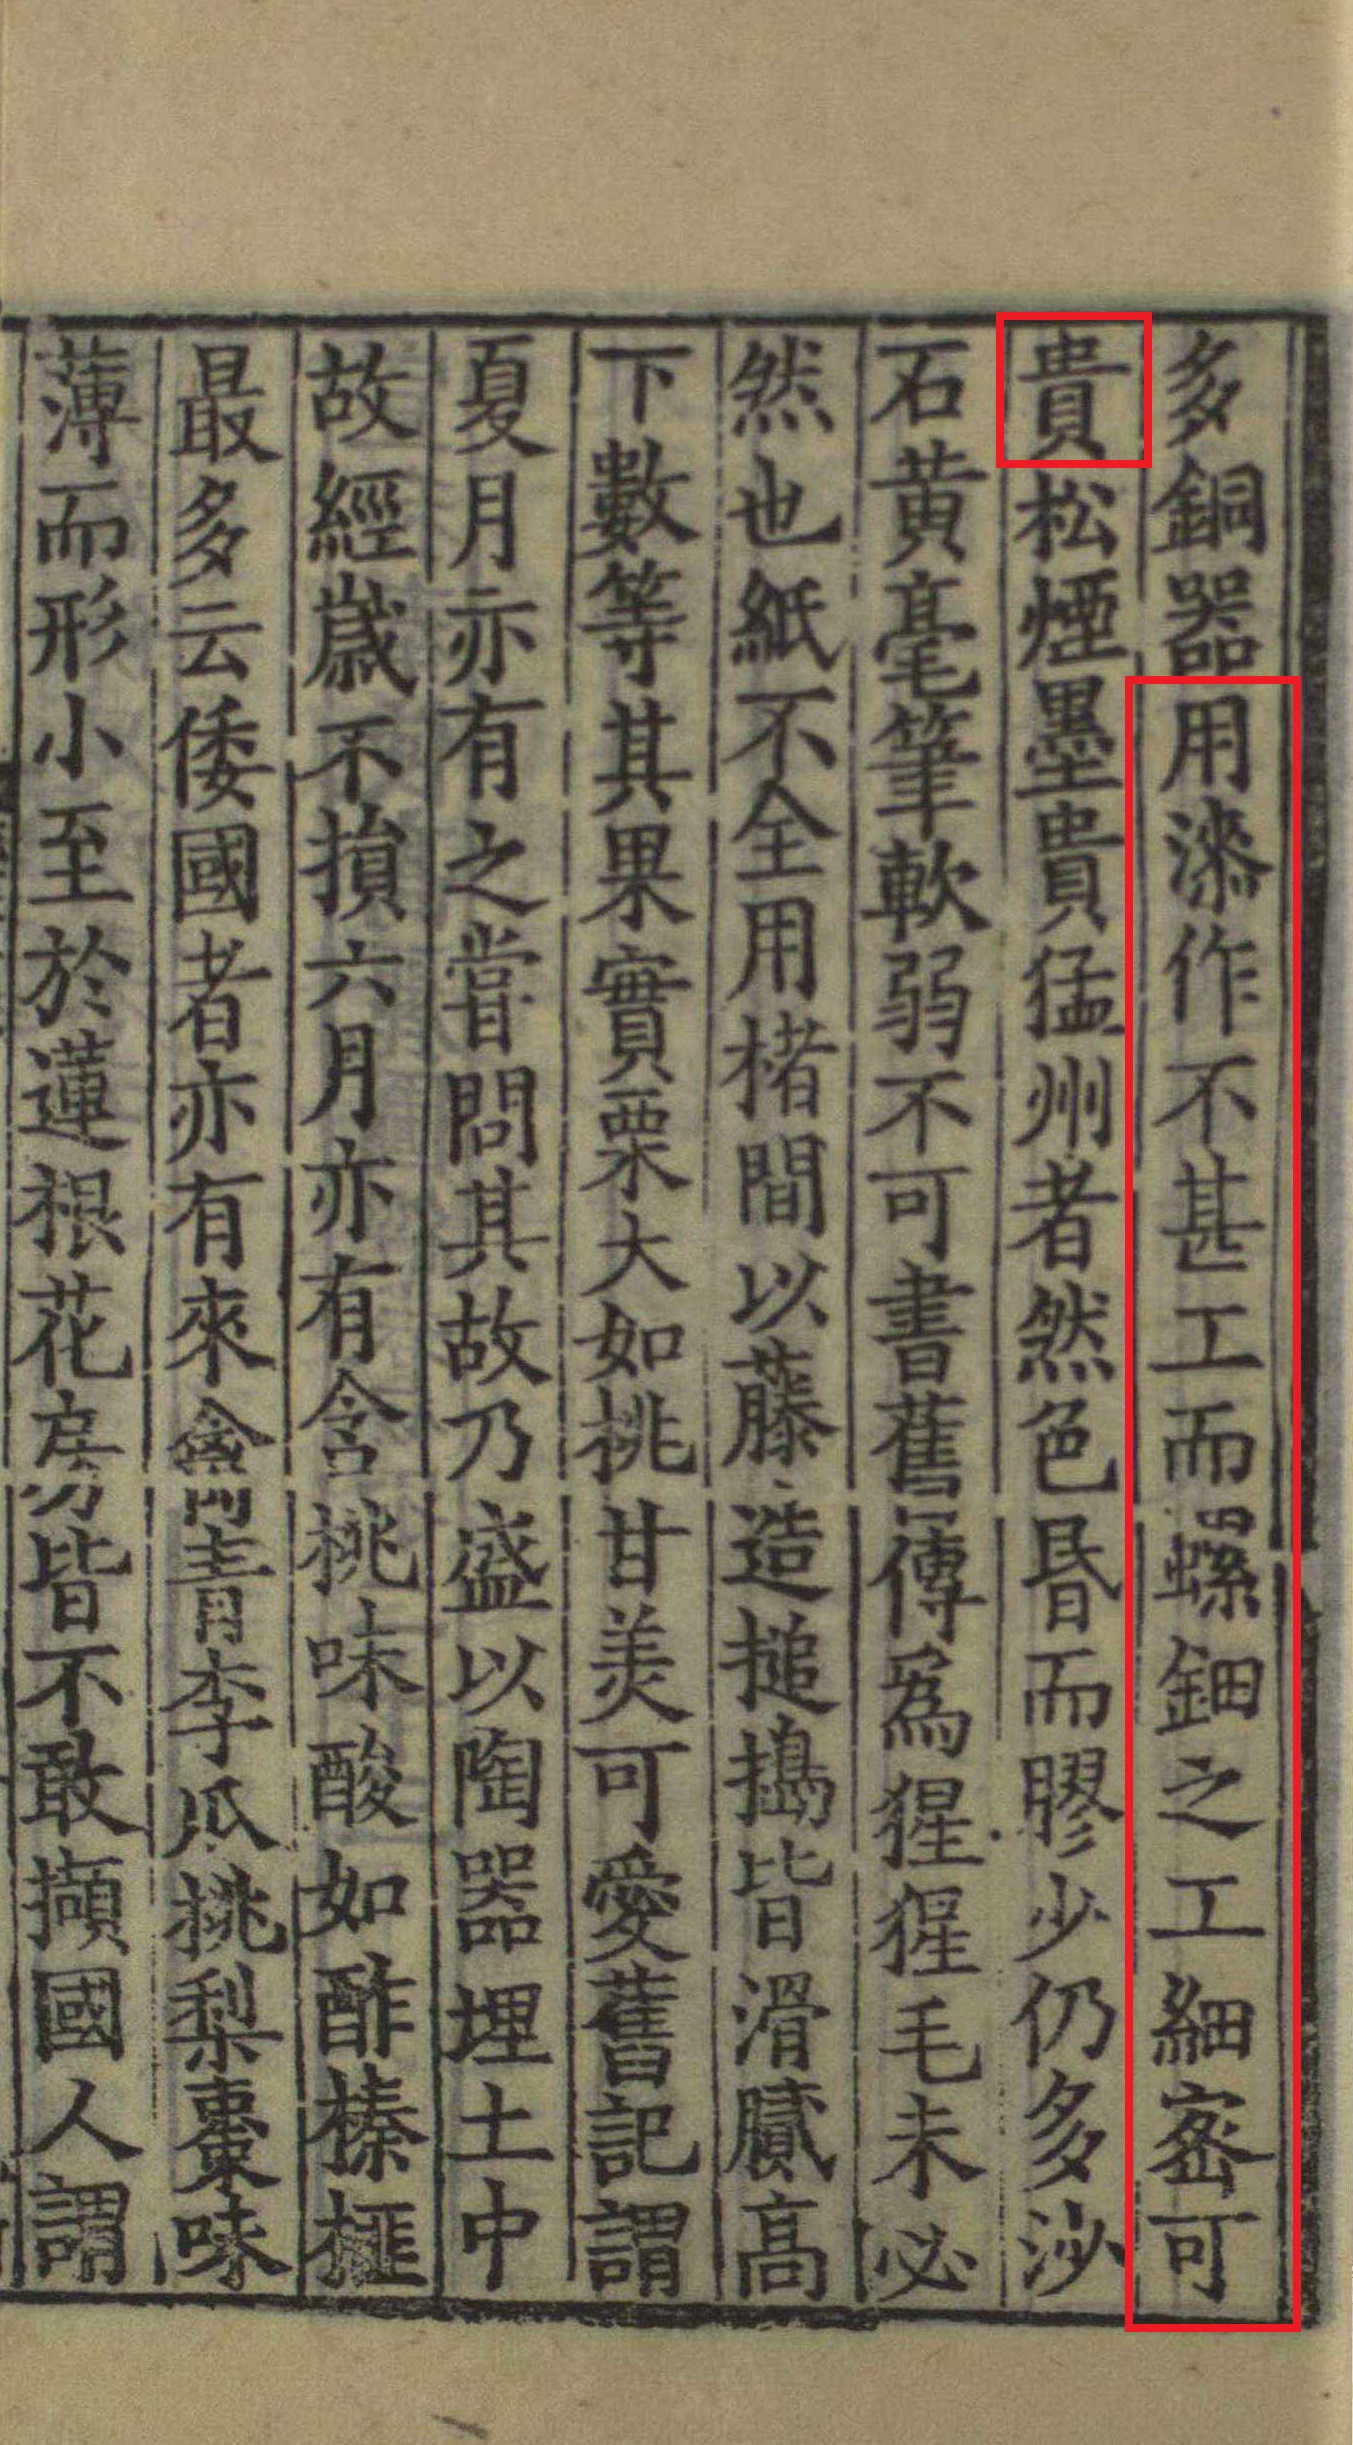 多銅器用漆作不甚工而螺鈿之工細宻可
貴松煙墨貴猛州者然色昏而膠少仍多沙
石黃毫筆軟弱不可書舊傳爲猩猩毛未必
然也紙不全用楮間以藤造搥搗皆滑膩高
下數等其果實栗大如桃甘美可愛舊記謂
夏月亦有之嘗問其故乃盛以陶器埋土中
故經歲不損六月亦有含桃味酸如酢榛榧
最多云倭國者亦有來禽青李瓜桃梨棗味
薄而形小至於蓮根花房皆不敢擷國人謂